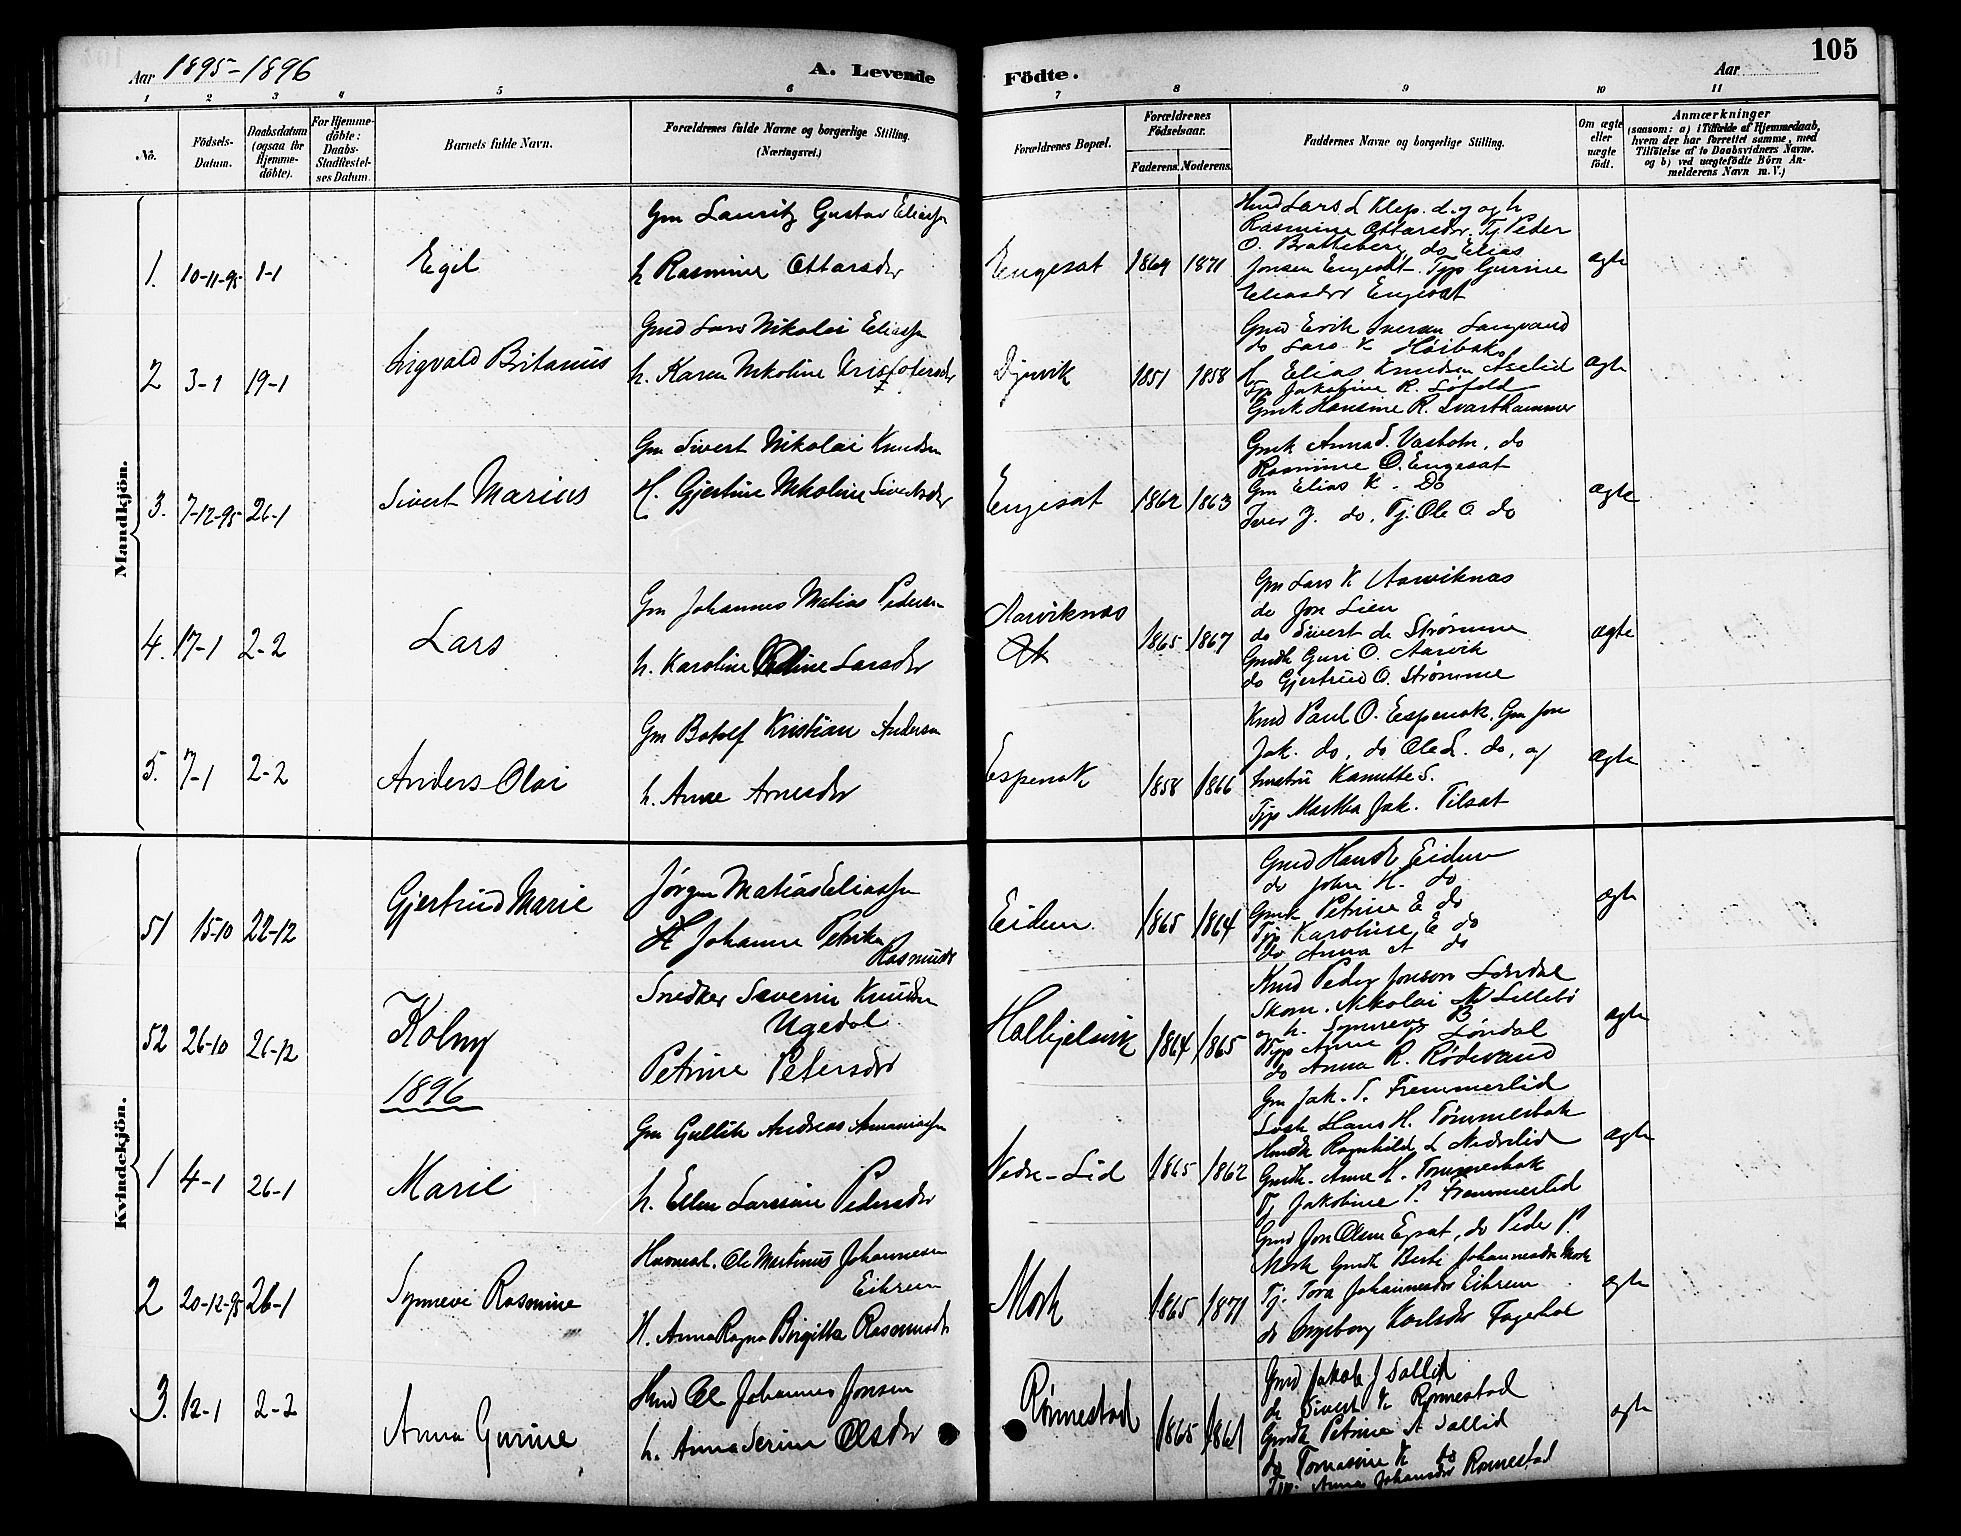 105
Aar 1895-1896
A. Levende
Födte.
Aar
1 2 3 4 5 6 7 8 9 10 11
No.
Födsels-
Datum.
Daabsdatum
(ogsaa for
Hjemme-
döbte).
For Hjemme-
döbte:
Daabs-
Stadfestel-
ses Datum.
Barnets fulde Navn.
Forældrenes fulde Navne og borgerlige Stilling.
(Næringsvei.)
Forældrenes Bopæl.
Forældrenes
Födselsaar.
Faderens. Moderens.
Faddernes Navne og borgerlige Stilling.
Om ægte
eller
uægte
födt.
Anmærkninger
(saasom: a) i Tilfælde af Hjemmedaab,
hvem der har forrettet samme, med
Tilföielse af to Daabsvidners Navne.
og b) ved uægtefödte Börn An-
melderens Navn m. V.)
Mandkjön.
1. 10-11-95 1-1
Egil
Gm Lauritz Gustav Eliassn
h Rasmine Ottarsdr
Engesat 1869 1871
Husd Lars L Klep. d. y og h
Rasmine Ottarsdr. Tj Peder
O. Bratteberg do Elias
Jonsen Engesat. Tjp Gurine
Eliasdtr Engesat
ægte
2 3-1 19-1
Sigvald Britanus
Gmd Lars Nikolai Eliassn
h. Karen Nikoline Kristofersdr
Djuvik 1851 1858
Gmd Erik Iversen Langvand
do Lars K Höibak
Elias Knudsen Aselid
Tjp Jakobine R. Löfold
Gmk Hansine R. Svarthammer
ægte
3. 7-12-95 26-1
Sivert Marius
Gm Sivert Nikolai Knudsen
H. Gjertine Nikoline Sivertsdr
Engesat 1862 1863
Gmk Anna S. Vasbotn, do
Rasmine O. Engesat
Gm Elias K. Do
Iver J. do, Tj. Ole O. do
ægte
4. 17-1 2-2
Lars
Gm Johannes Matias Pedersn
h. Karoline Oline Larsdr
Aarviknes
1865 1867
Gm Lars K Aarviknas
do Jon Lien
do Sivert do Strømme
Gmdk Guri O. Aarvik
do Gjertrud O. Strømme
ægte
5. 7-1 2-2
Anders Olai
Gm Botolf Kristian Andersn
h. Anne Arnesdr
Espenak 1858 1866
Kmd Paul O. Espenak, Gm Jon
Jak. do, do Ole L. do, og
hustru Kanutte S.
Tjp Martha Jak. Tilsat
ægte
Kvindekjön.
51 15-10 22-12
Gjertrud Marie
Jörgen Matias Eliassn
H Johanne Petrike
Rasmusdr
Eidem 1865 1864
Gmd Hans K Eidem
do John K. do
Gmk Petrine E do
Tjp Karoline E do
do Anna A do
ægte
52 26-10 26-12
Kolny
Snedker Severin Knudsn
Ugedal
Petrine Petersdr
Halkjelsvik 1864 1865
Kmd Peder Jonson Løndal
Skom. Nikolai N Lillebö
og h. Synneva B
Tjp Anne Löndal
do Anna R. Rödvand
ægte
1896
1 4-1 26-1
Marie
Gm Gullik Andreas Ananiassn
h. Ellen Larsine Pedersdr
Nedre-Lid 1865 1862
Gm Jak. T. Fremmerlid
Hans H. Tömmerbak
Ragnhild L Nedrelid
Gmdk. Anne H. Tömmerbak
Tj Jakobine P. Fremmerlid
ægte
2 20-12-95 26-1
Synnevi Rasmine
Husmd. Ole Martinus Johannesen
Eikrem
H. Anna Ragna Birgitta Rasmusdr
Mork 1865 1871
Gmd Jon Olsen Egsat, do Peder P.
Mork Gmdk Berte Johannesdr Mork
Tj. Tora Johannesdr Eikrem
do Ingeborg Karlsdr Fagerhol
ægte
3. 12-1 2-2
Anna Gurine
Hmd Ole Johannes Jonsen
h. Anna Serine Olsdr
Rönnestad 1865 1861
Gmd Jakob J Sollid
do Sivert K Rönnestad
Gmdk Petrine A Sollid
do Tomasine K do
Tjp. Anna Johansdr Rönnestad
ægte